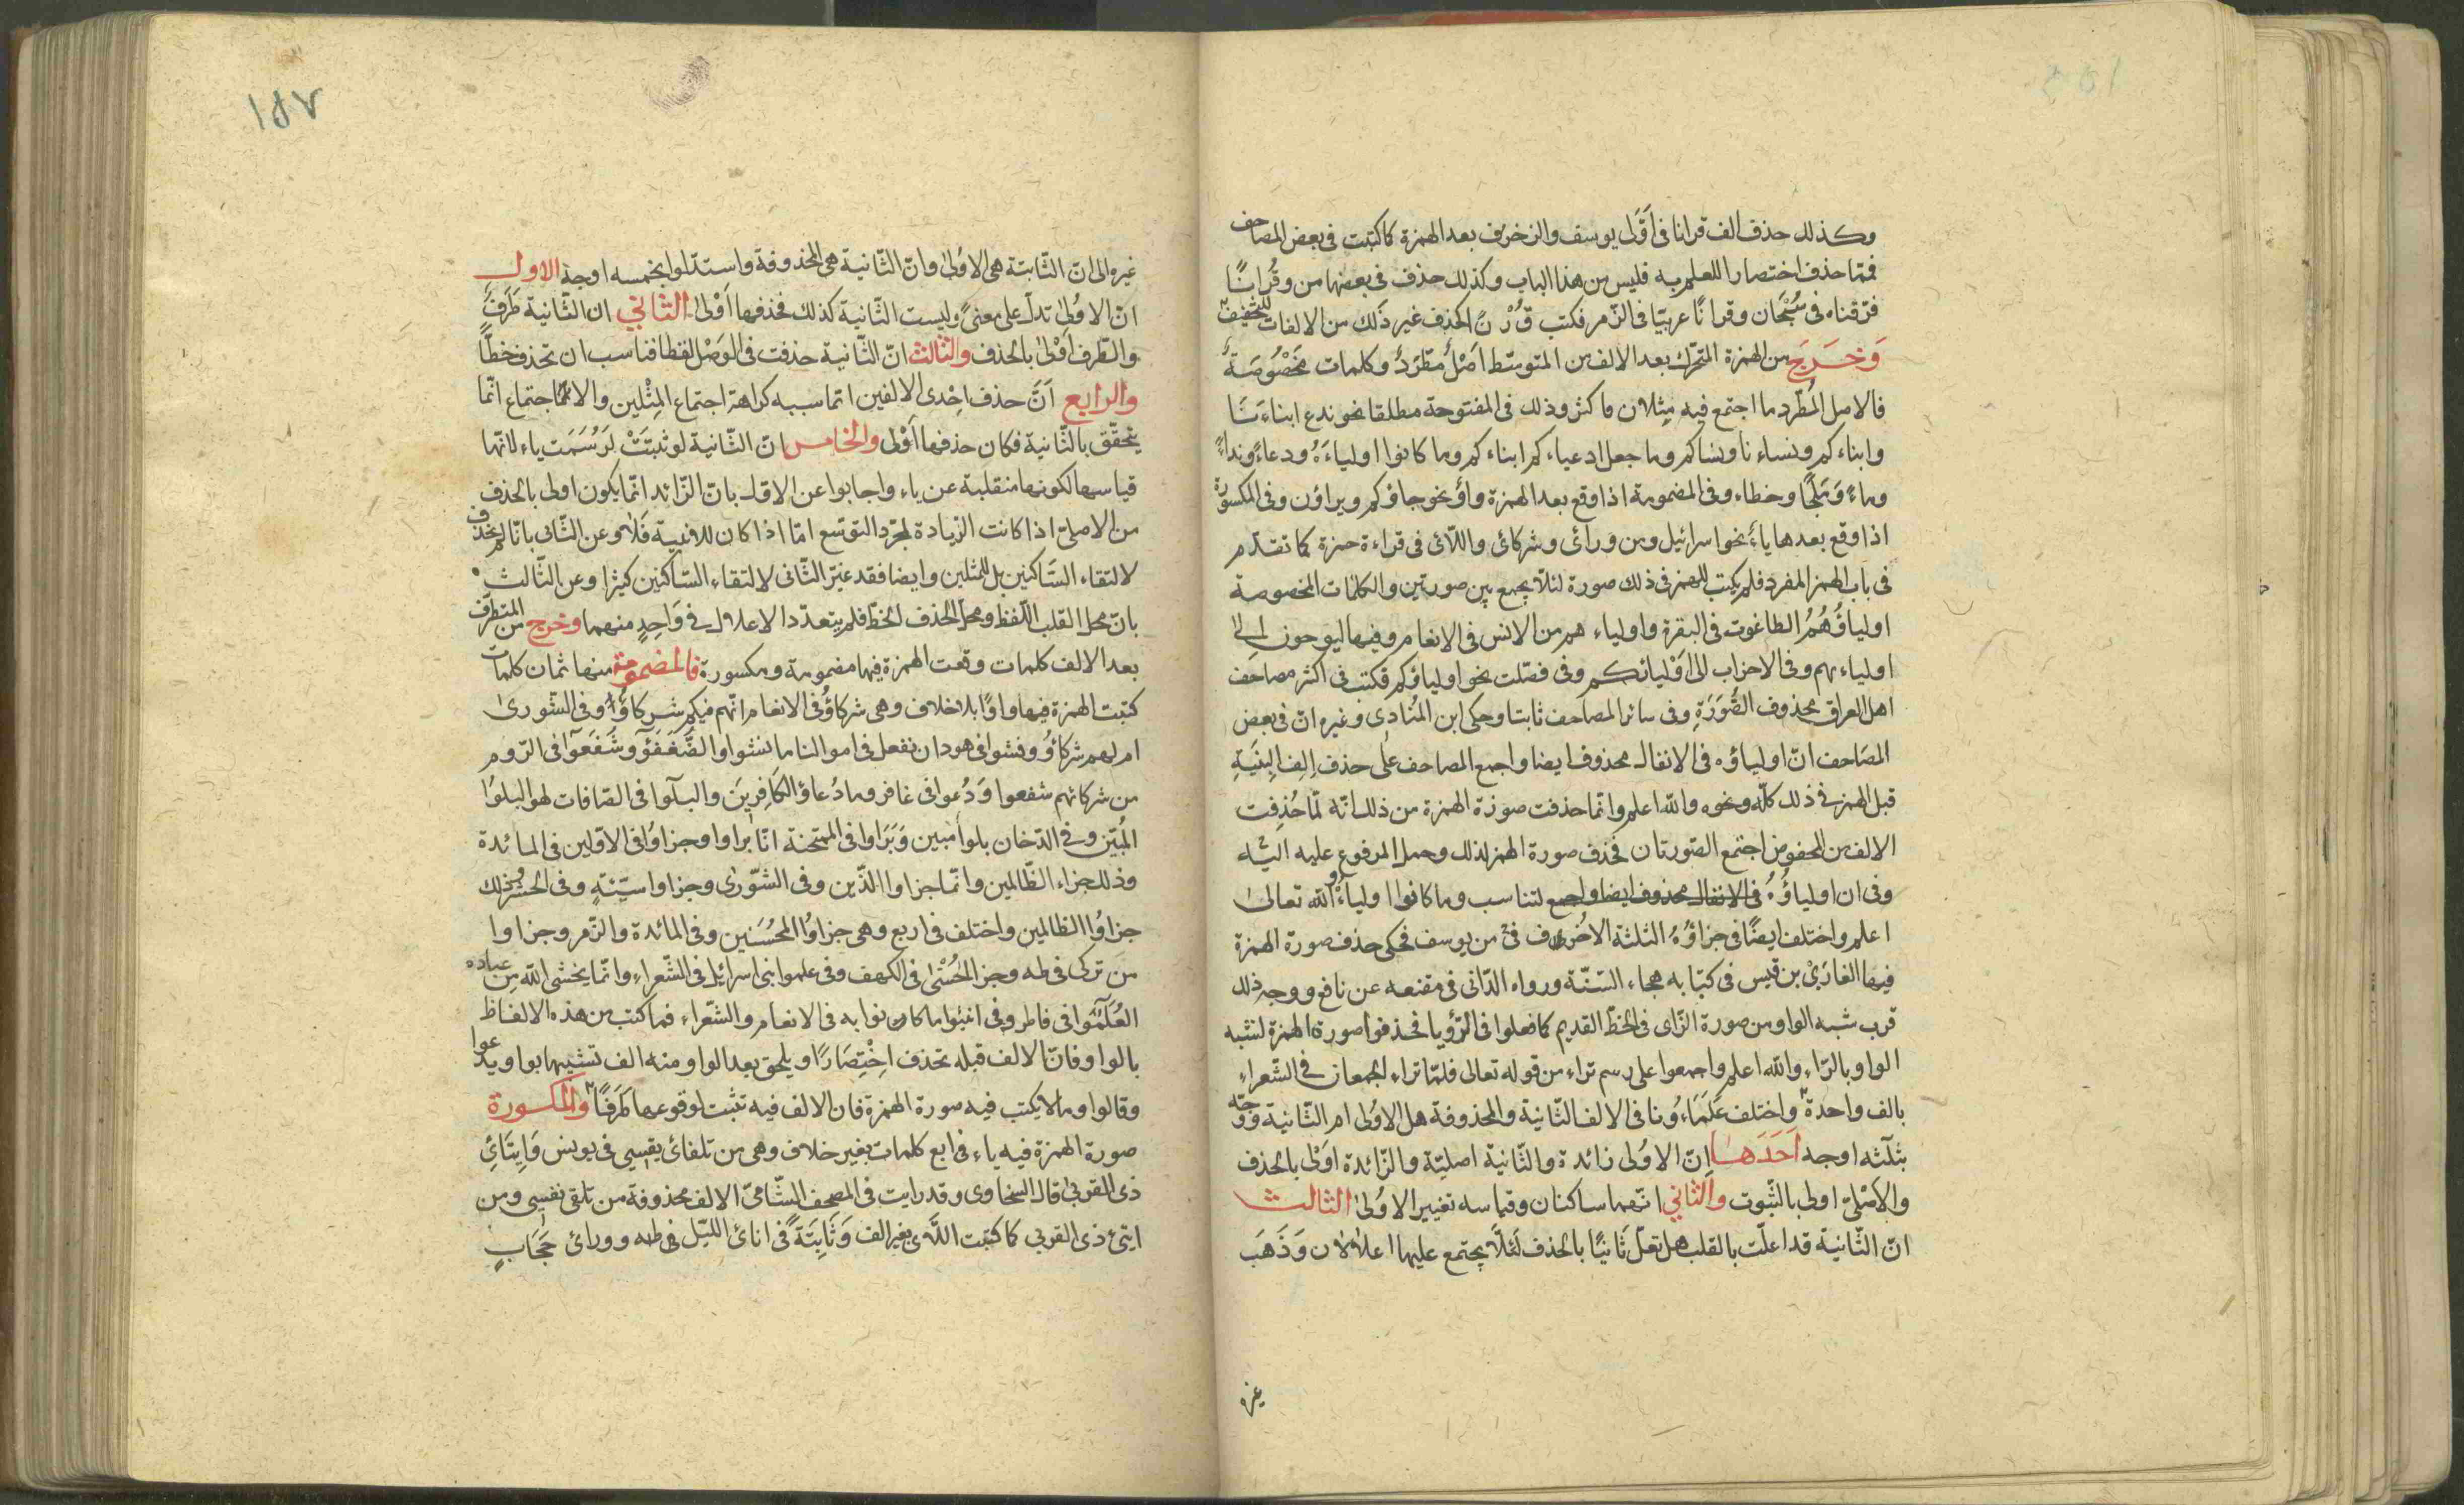 وكذلك حذف الف قرانا فى اوّل يوسف والزخرف بعد الهمزة كما كتبت فى بعض المصاحف
فمما حذف اختصارا للعلم به فليس من هذا الباب وكذلك حذف فى بعضها من وقُرانًا
فرّقناه فى سُبْحَان وقرانًا عربيّا فى الزّمر فكتب قُرْنً اكحذف غير ذلك من الالفات للتخفيف
وَخَرَجَ من الهمزة المتحرّك بعد الالف من المتوسّط اَصْلٌ مطّرَدٌ وكلمات مخَصُوصَةٌ
فالاصل المُطّرد ما اجتمع فيه مِثلان فاكثر وذلك فى المفتوحة مطلقا نحو ندع ابناءَنَا
وابناءكم ونساءنا ونساكم وما جعل ادعياءكم ابناءكم وما كانوا اولياءَهُ ودعاءً ونداءً
وماءً وَمَلجًا وخطاء وفى المضمومة اذا وقع بعد الهمزة واوٌ نحو جاؤكم ويراؤن وفى المكسورة
اذا وقع بعدها ياءٌ نحو اسرائيل ومن ورائى وشركائى واللّائى فى قراءة حمزة كما تقدّم
فى باب الهمز المفرد فلم يكتب للهمز فى ذلك صورة لئلّا يجمع بين صورتين والكلمات المخصوصة
اولياؤُهُمُ الطاغوت فى البقرة واولياءهم من الانس فى الانعام وفيها ليوحون الى
اولياءهم وفى الاحزاب الى اَوْليائكم وفى فصّلت نحو اولياؤكم فكتب فى اكثر مصاحف
اهل العراق محذوف الصُّوَرَةِ وفى سائر المصاحف ثابتا وحكى ابن المُنادِى وغيره انّ فى بعض
المصَاحف انّ اولياؤه فى الانفال محذوف ايضا واجمع المصاحف على حذف اِلِف البِنْيَةِ
قبل الهمز فى ذلك كلّه ونحوه والله اعلم وانّما حذفت صورة الهمزة من ذلك انّه لمّا حُذِفت
الالف من المحفوض اجتمع الصّورتان فحذف صورة الهمز لذلك وحمل المرفوع عليه
وفى ان اولياؤُهُ فى الانفال محذوف ايضا واجمع لتناسب وما كانوا اولياءَهُ والله تعالى
اعلم واختلف ايضًا فى جزاؤُهُ الثلثة الاحُرف فى من يوسف فحكى حذف صورة الهمزة
فيها الغازِىْ بن قيس فى كتابه هجاء السّنّة ورواه الدّانى فى مقنعه عن نافع ووجه ذلك
قرب شبه الواو من صورة الزّاى فى الخطّ القديم كما فعلوا فى الرّؤيا فحذفوا صورة الهمزة لشبه
الواو بالرّاء والله اعلم واجمعوا على رسم تراء من قوله تعالى فلمّا تراء الجمعان فى الشّعراء
بالف واحدة واختلف عُلَمَاءُونا فى الالف الثّانية والمحذوفة هل الاوُلى ام الثّانية ووجّه
بثلثه اوجه اَحَدَهَا اِنّ الاوُلى زائدة والثّانية اصليّة والزّائدة اَوْلى بالحذف
والاَصْلىّ اولى بالثّبوت والثّانى انّهما ساكنان وقياسه تغيير الاوُلى الثالث
انّ الثّانية قد اعلّت بالقلب هل تعلّ ثَانيًا بالحذف لئلّا يجتمع عليها اعلالان وَذَهَبَ
غيره
١٥٧
غيره الى انّ الثّابتة هى الاوُلى وانّ الثّانية هى المحذوفة واستدّلوا بخمسه اوجه الاول
انّ الاوُلى تدلّ على معنىً وليست الثّانية كذلك فحذفها اَوْلى الثانى ان الثّانية طَرَفٌ
والطّرف اَوْلى بالحذف والثالث انّ الثّانية حذفت فى الوَصْل لفظا فناسب ان تحذف خطّا
والرابع اَنَّ حذف اِحْدى الالفين انما سببه كراهة اجتماع المِثْلين والاجتماع انّما
يتحقّق بالثّانية فكان حذفها اَوْلى والخامس انّ الثّانية لو ثبتَتْ لرُسُمَت ياء لانّها
قياسها لكونها منقلبة عن ياء واجابوا عن الاوّل بانّ الزّائد انّما يكون اولى بالحذف
من الاصلىّ اذا كانت الزّيادة لمجرّد التوسّع امّا اذا كان للافنية فَلَا وعن الثّانى بانّا لم نحذف
لالتقاء السّاكنين بل للمثلين وايضا فقد غيّر الثّانى لالتقاء السّاكنين كثيرا وعن الثّالث
بانّ محل القلب اللّفظ ومحلّ الحذف الخطّ فلم يتعدّد الاعلال فى وَاحِدٍ منهما وخرج من المتطرّف
بعد الالف كلمات وقعت الهمزة فيها مضمومة ومكسورة فالمضمومة منها ثمان كلمات
كتبت الهمزة فيها واوًا بلا خلاف وهى شركاؤُ فى الانعام انّهم فيكم شركاؤُا وفى الشّورى
ام لهم شركاؤُ وفشوا فى هود ان نفعل فى اموالنا ما نشوا والضُّعَفَؤُ وشُفَعَوا فى الرّوم
من شركائهم شفعوا وَدُعوا فى غافر وما دُعاؤ الكَافِرِينَ والبلوا فى الصّافات لهو البلوا
المُبين وفى الدّخان بلوا مُبين وَبَرَاوا فى الممتحنة انّا براوا وجزاوُا فى الاوّلين فى المائدة
وذلك جزاء الظّالمين وانّما جزاوا الّذين وفى الشّورى وجزاوا سيّئةٍ وفى الحشر وذلك
جزاوُا الظالمين واختلف فى اربع وهى جزاوُا المحُسَنين وفى المائدة والزّمر وجزاوا
مَن تزكى فى طه وجزا الحُسْنى فى الكهف وفى علموا بنى اسرائيل فى الشّعراء وانّما يخشى الله مِن عباده
العُلَمَوا فى فاطر وفى انبئوا ما كانوا به فى الانعام والشّعراء فما كتب من هذه الالفاظ
بالواو فانّ الالف قبله تحذف اخْتِصَارًا ويلحق بعد الواو منه الف تشبيها بواو يدعوا
وقالوا وما لا يكتب فيه صورة الهمزة فان الالف فيه تثبت لوقوعها طَرَفًا والمكسورة
صورة الهمزة فيه ياء فى اربع كلمات بغير خلاف وهى من تلقائ نفسِى فى يونس وَاِيتَائِ
ذى القربى قال السخاوى وقد رايت فى المصحف الشّامىّ الالف محذوفة من تلقئ نفسِى ومن
ايتئ ذى القربى كما كتبت اللّى بغير الف وَثَابِتَةً فى انائ اللّيل فى طه وورائ حِجَابٍ